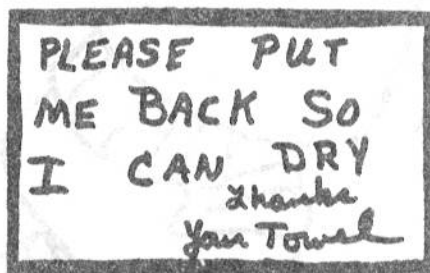 PLEASE PUT
ME BACK SO
I CAN DRY
Thanks
Your Towel